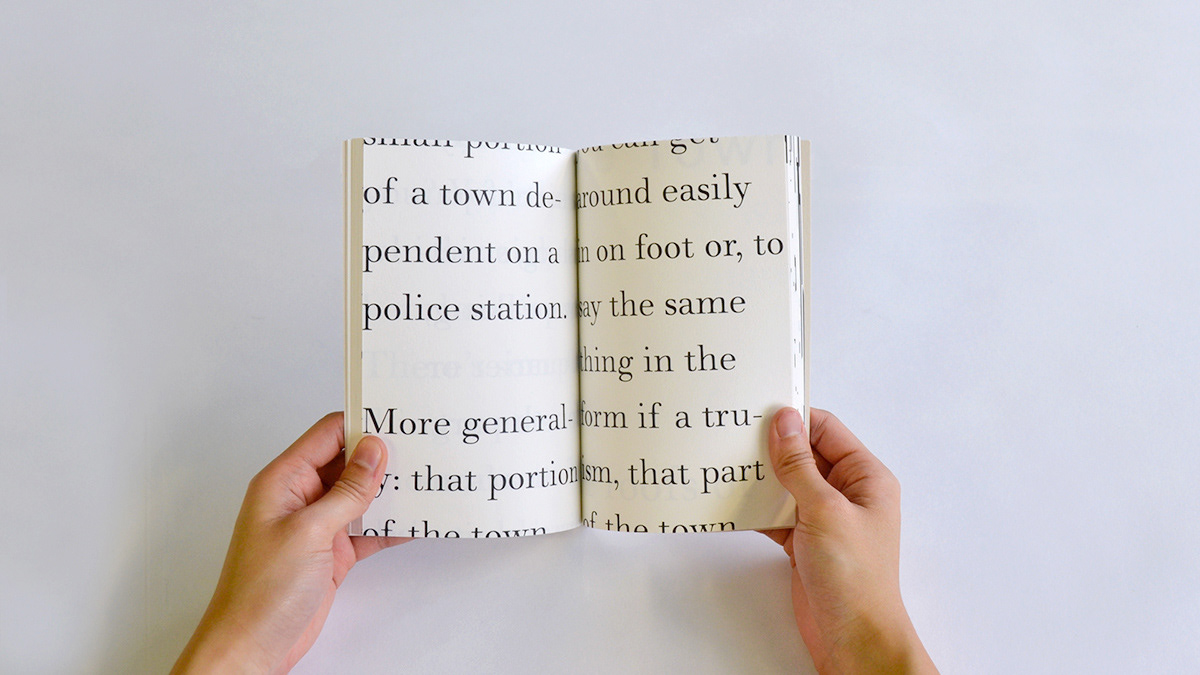 small portion
of a town de-
pendent on a
police station.
More general-
y: that portion
of the town
you can get
around easily
in on foot or, to
say the same
thing in the
form if a tru-
ism, that part
of the town